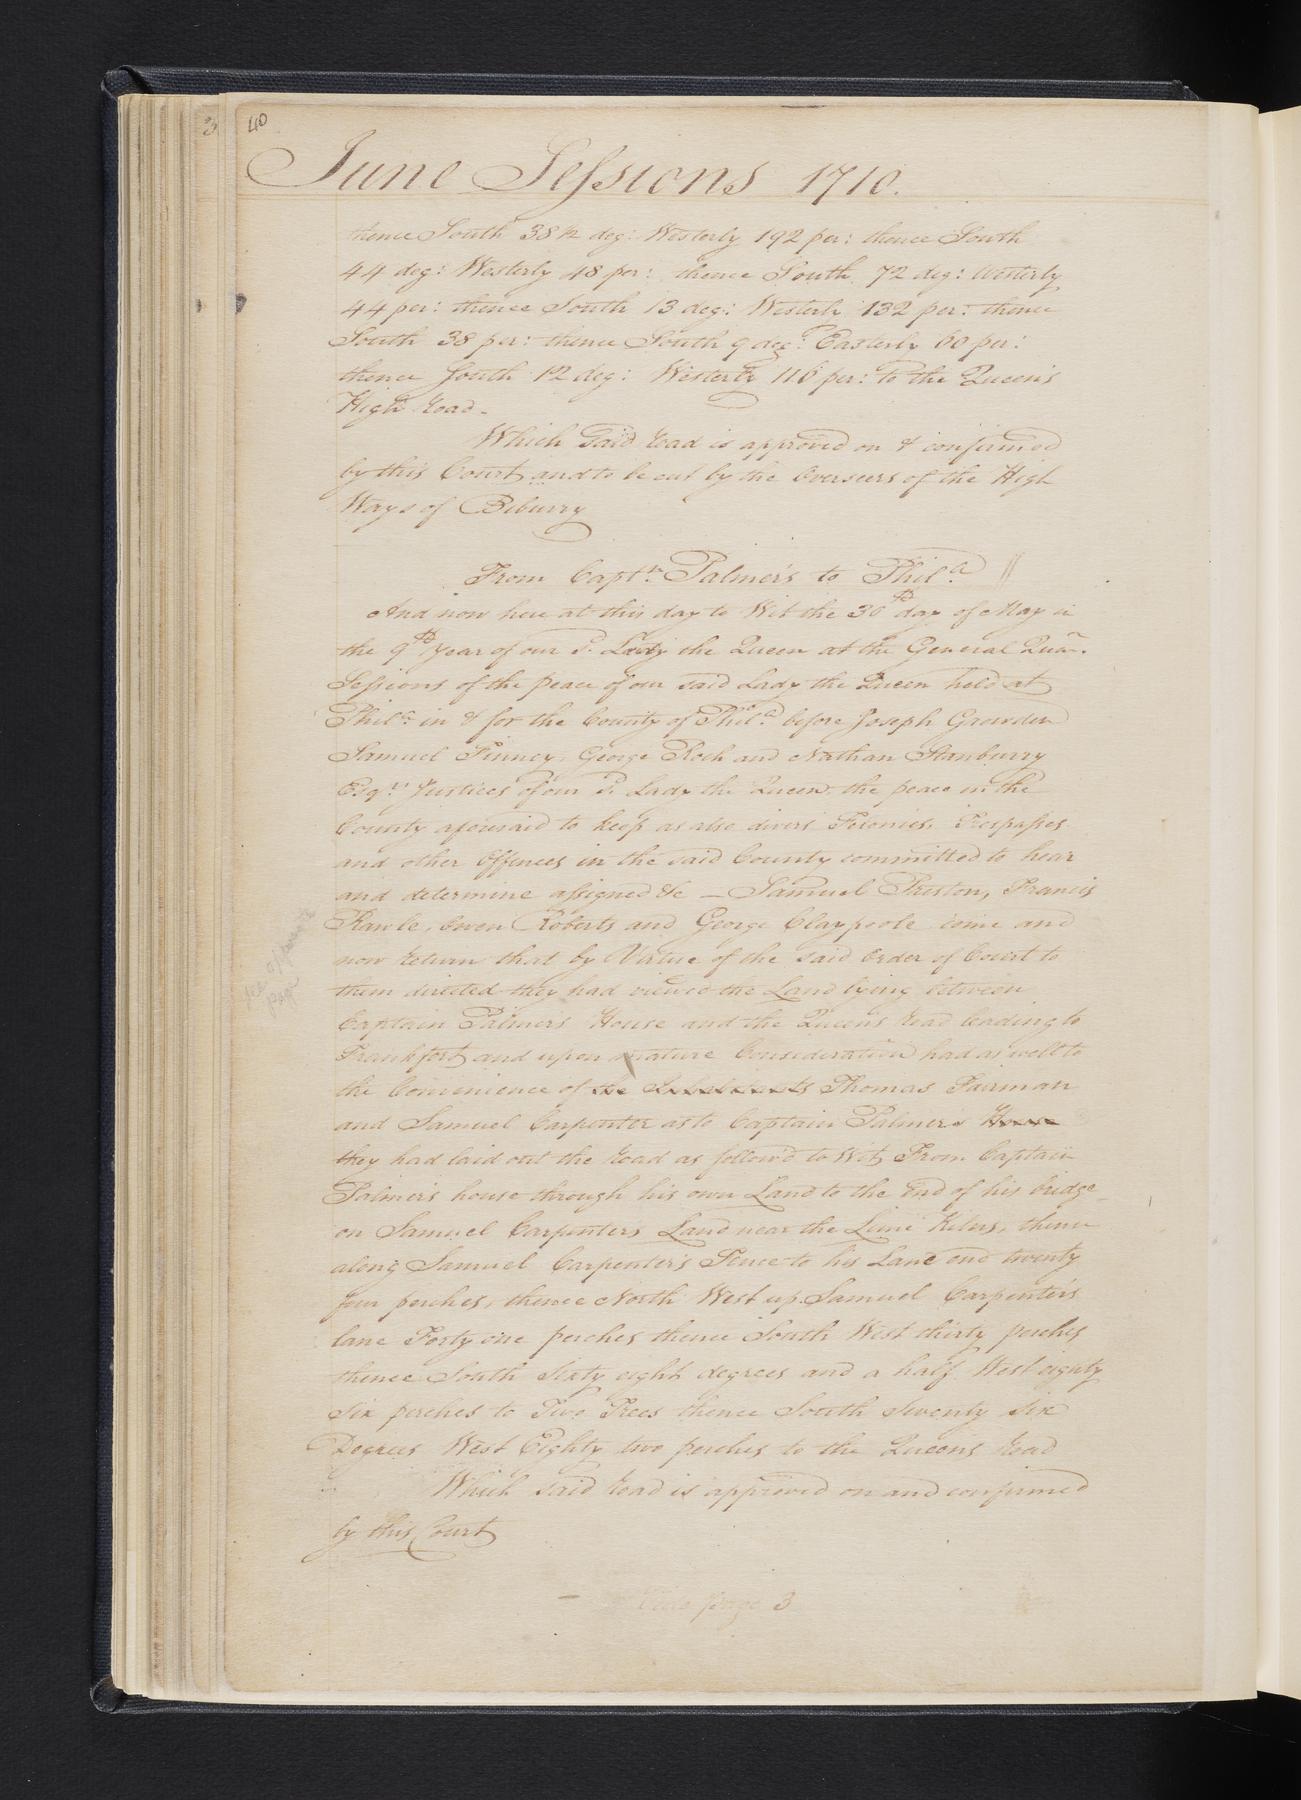 40
June Sessions 1710.
thence South 38½ deg: Westerly 192 per: thence South
44 deg: Westerly 48 per: thence South 72 deg: Westerly
44 per: thence South 13 deg: Westerly 132 per: thence
South 38 per: thence South 9 deg: Easterly 60 per:
thence South 12 deg: Westerly 116 per: to the Queen's
High Road.
Which said Road is approved on & confirmed
by this Court and to be cut by the Overseers of the High
Ways of Biburry
From Captn. Palmer's to Phila.
And now here at this day to Wit the 30th day of May in
the 9th Year of our sd. Lady the Queen at the General Quar.
Sessions of the peace of our said Lady the Queen held at
Phila. in & for the County of Phila. before Joseph Growden
Samuel Finney, George Roch and Nathan Stanburry
Esqrs. Justices of our sd. Lady the Queen the peace in the
County aforesaid to keep as also divers Felonies, Trespasses
and other Offences in the said County committed to hear
and determine assigned &c — Samuel Preston, Francis
Rawle, Owen Roberts and George Claypoole come and
now return that by Virtue of the said Order of Court to
them directed they had viewed the Land lying between
Captain Palmer's House and the Queen's Road leading to
Frankfort and upon mature Consideration had as well to
the Convenience of the Inhabitants Thomas Fairman
and Samuel Carpenter as to Captain Palmer's House
they had laid out the Road as follow'd to Wit, From Captain
Palmer's house through his own Land to the End of his bridge
on Samuel Carpenter's Land near the Lime Kilns, thence
along Samuel Carpenter's Fence to his Lane end twenty
four perches, thence North West up Samuel Carpenter's
lane Forty one perches thence South West thirty perches
thence South Sixty eight degrees and a half West eighty
Six perches to Two Trees thence South Seventy Six
Degrees West Eighty two perches to the Queen's Road
Which said Road is approved on and confirmed
by this Court
see opposite
page
page 3